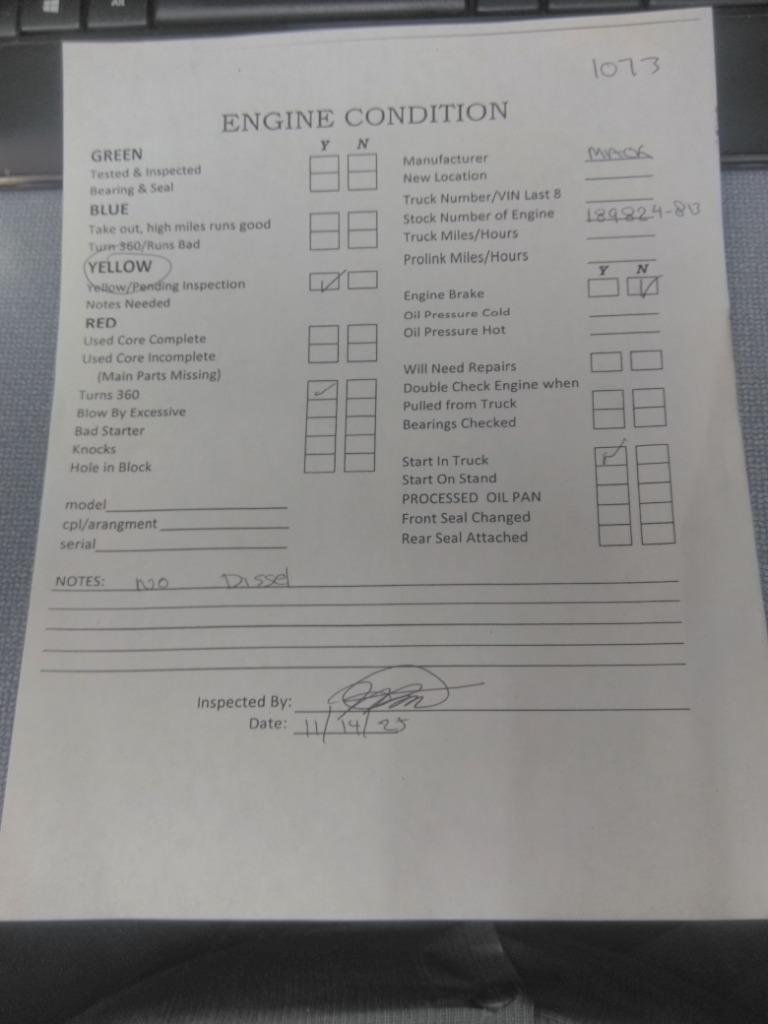 Alt
1073
ENGINE CONDITION
Y N
GREEN
Tested & Inspected
Bearing & Seal
BLUE
Take out, high miles runs good
Turn 360/Runs Bad
YELLOW
Yellow/Pending Inspection
Notes Needed
RED
Used Core Complete
Used Core Incomplete
(Main Parts Missing)
Turns 360
Blow By Excessive
Bad Starter
Knocks
Hole in Block
model
cpl/arangment
serial
Manufacturer MACK
New Location
Truck Number/VIN Last 8
Stock Number of Engine 189824-813
Truck Miles/Hours
Prolink Miles/Hours
Y N
Engine Brake
Oil Pressure Cold
Oil Pressure Hot
Will Need Repairs
Double Check Engine when
Pulled from Truck
Bearings Checked
Start In Truck
Start On Stand
PROCESSED OIL PAN
Front Seal Changed
Rear Seal Attached
NOTES: NO Dissel
Inspected By:
Date: 11/14/25